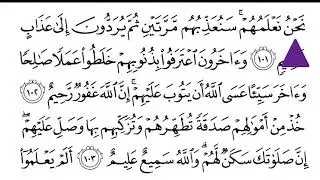 نَحْنُ نَعْلَمُهُمْ ۚ سَنُعَذِّبُهُم مَّرَّتَيْنِ ثُمَّ يُرَدُّونَ إِلَىٰ عَذَابٍ
١٠١ وَءَاخَرُونَ ٱعْتَرَفُوا۟ بِذُنُوبِهِمْ خَلَطُوا۟ عَمَلًا صَـٰلِحًا
وَءَاخَرَ سَيِّئًا عَسَى ٱللَّهُ أَن يَتُوبَ عَلَيْهِمْ ۚ إِنَّ ٱللَّهَ غَفُورٌ رَّحِيمٌ ١٠٢
خُذْ مِنْ أَمْوَٰلِهِمْ صَدَقَةً تُطَهِّرُهُمْ وَتُزَكِّيهِم بِهَا وَصَلِّ عَلَيْهِمْ ۖ
إِنَّ صَلَوٰتَكَ سَكَنٌ لَّهُمْ ۗ وَٱللَّهُ سَمِيعٌ عَلِيمٌ ١٠٣ أَلَمْ يَعْلَمُوٓا۟